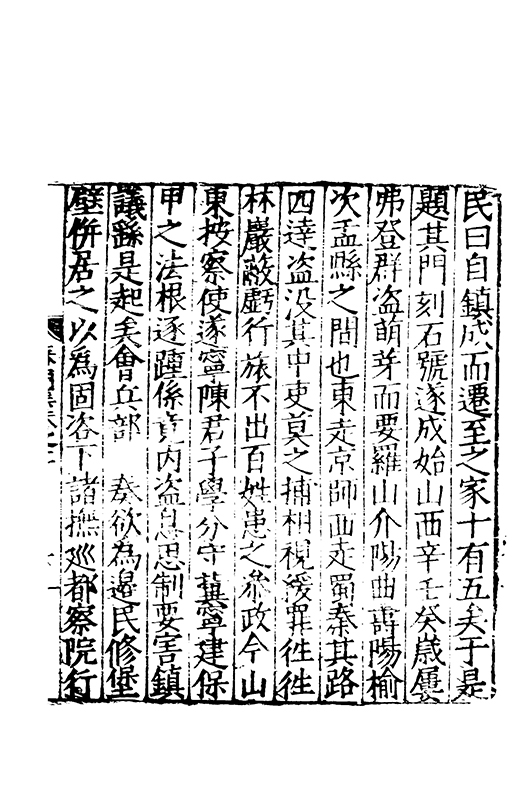 民曰自鎮成而遷至之家十有五矣于是
題其門刻石號遂成始山西辛壬癸歲屢
弗登群盗萌芽而要羅山介陽曲壽陽榆
次盂縣之間也東走京師西走蜀秦其路
四達盗没其中吏莫之捕相視緩罪徃徃
林巖蔽虧行旅不出百姓患之叅政今山
東按察使遂寧陳君子學分守冀寧建保
甲之法根逐踵係竟内盗息思制要害鎮
議繇是起矣會兵部 奏欲為邊民修堡
壁併居之以爲固咨下諸撫廵都察院行